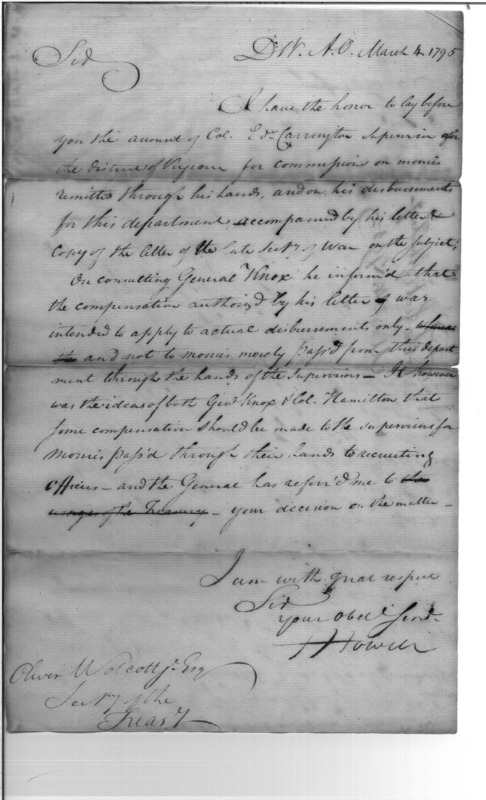 D.W. A.O. March 4. 1795
Sir
I have the honor to lay before
you the account of Col. Edwd Carrington Supervisor of
the District of Virginia for commissions on monies
remitted through his hands, and on his disbursements
for this department accompanied by his letter &
copy of the letter of the late Secty. of War on the subject;
On consulting General Knox he inform'd that
the compensation authoris'd by his letter was
intended to apply to actual disbursements only
and not to monies merely pass'd from this depart
ment through the hands of the Supervisors – It however
was the ideas of both Genl Knox & Col. Hamilton that
some compensation should be made to the supervisors for
monies pass'd through their hands to recruiting
officers – and the General has referr'd me to the
usages of the Treasury – your decision on the matter –
I am with great respect
Sir
Your Obed. Servt.
J Howell
Oliver Wolcott Jr. Esq
Secty of the
Treasy